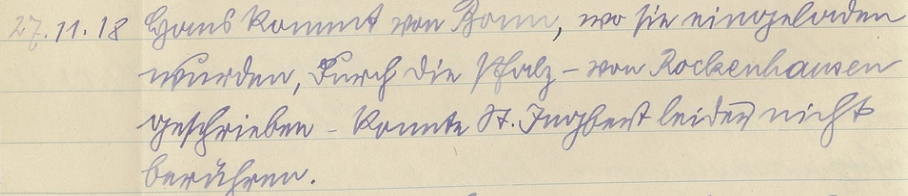 27.11.18 Hans kommt von Bonn, wo sie eingeladen
wurden, durch die Pfalz – von Rockenhausen
geschrieben – konnte St. Ingbert leider nicht
berühren.